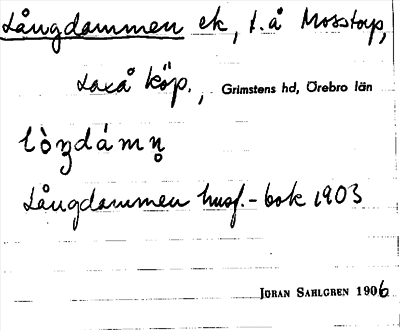 Långdammen ek, t.å Mosstorp,
Laxå köp., Grimstens hd, Örebro län
Långdammen husf.-bok 1903
JÖRAN SAHLGREN 1906